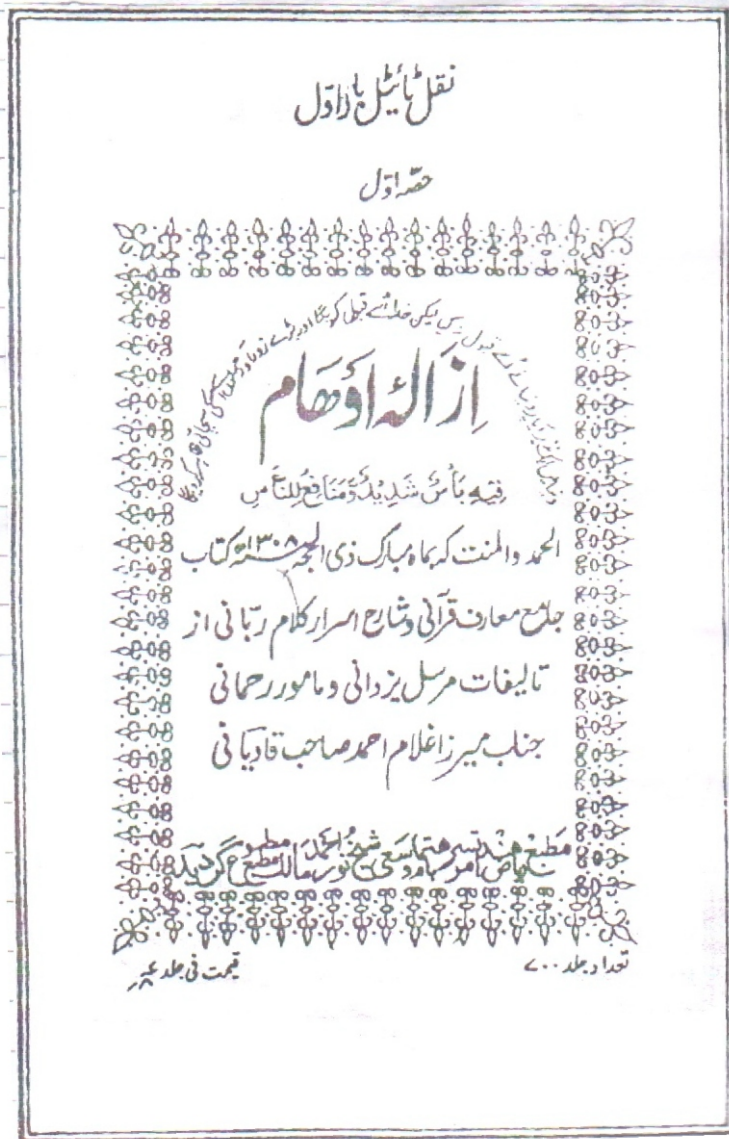 نقل ٹائیٹل بار اوّل
حصّہ اوّل
دنیا میں ایک نذیر آیا پر دنیا نے اُسے قبول نہیں کیا لیکن خدا اُسے قبول کریگا اور بڑے زور آور حملوں سے اُسکی سچائی ظاہر کر دیگا
اِزَالۂ اَوْهَام
فِیهِ بَأْسٌ شَدِیْدٌ وَّمَنَافِعُ لِلنَّاسِ
الحمد والمنت کہ بماہ مبارک ذی الحجہ ۱۳۰۸ھ کتاب
جامع معارف قرآنی و شارح اسرار کلام ربّانی از
تالیفات مرسل یزدانی و مامور رحمانی
جناب میرزا غلام احمد صاحب قادیانی
مطبع ریاض ہند امرتسر شیخ نور احمد مالک مطبع گردید
تعداد جلد ۷۰۰
قیمت فی جلد